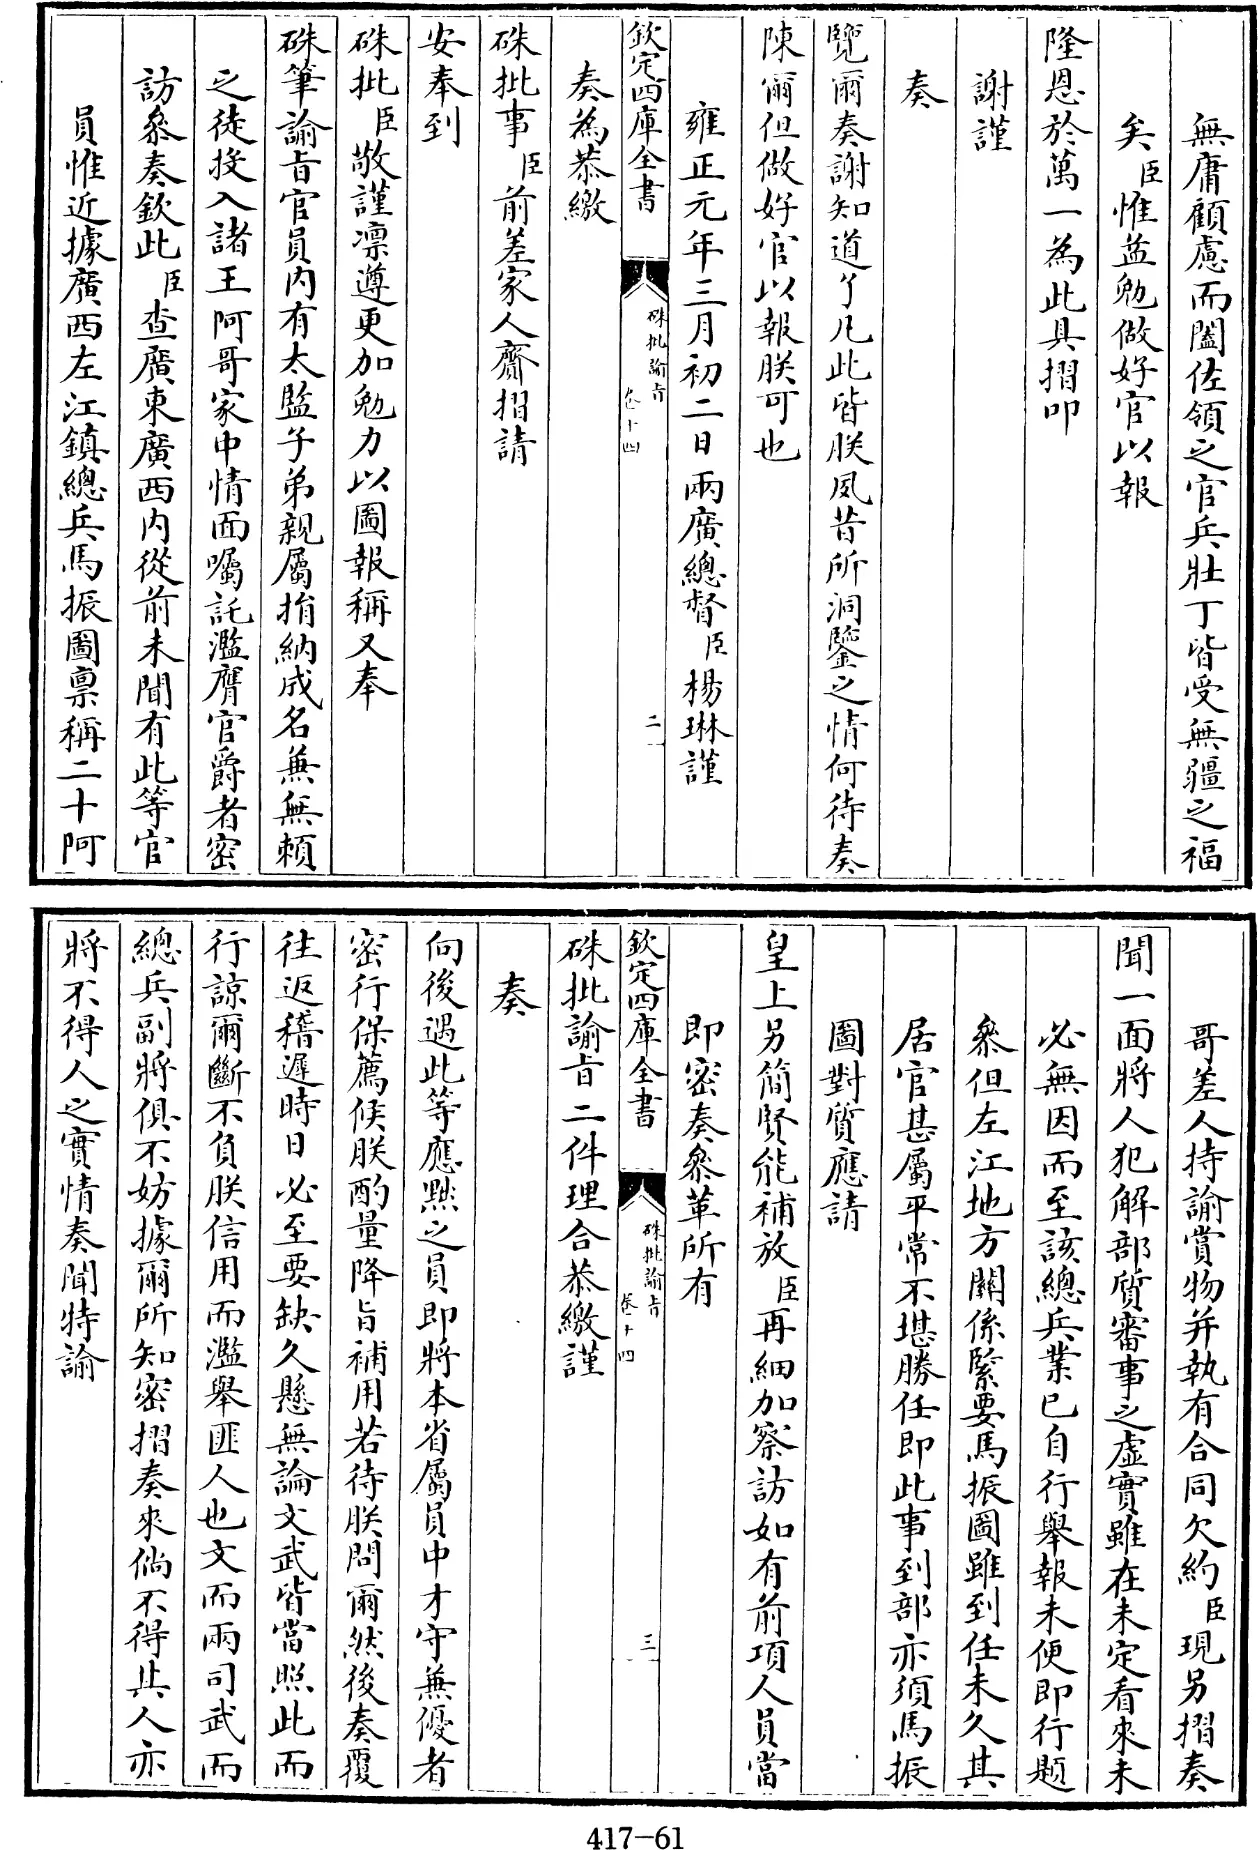 無庸顧慮而闔佐領之官兵壯丁皆受無疆之福
矣臣惟益勉做好官以報
隆恩於萬一為此具摺叩
謝謹
奏
覽爾奏謝知道了凡此皆朕夙昔所洞鑒之情何待奏
陳爾但做好官以報朕可也
雍正元年三月初二日兩廣總督臣楊琳謹
欽定四庫全書
硃批諭旨
卷十四
二
奏為恭繳
硃批事臣前差家人齎摺請
安奉到
硃批臣敬謹凛遵更加勉力以圖報稱又奉
硃筆諭旨官員内有太監子弟親屬捐納成名兼無賴
之徒投入諸王阿哥家中情面囑託濫膺官爵者密
訪叅奏欽此臣查廣東廣西内從前未聞有此等官
員惟近據廣西左江鎮總兵馬振圖禀稱二十阿
哥差人持諭賞物并執有合同欠約臣現另摺奏
聞一面將人犯解部質審事之虛實雖在未定看來未
必無因而至該總兵業已自行舉報未便即行題
叅但左江地方關係緊要馬振圖雖到任未久其
居官甚屬平常不堪勝任即此事到部亦須馬振
圖對質應請
皇上另簡賢能補放臣再細加察訪如有前項人員當
即密奏叅革所有
欽定四庫全書
硃批諭旨
卷十四
三
硃批諭旨二件理合恭繳謹
奏
向後遇此等應㸃之員即將本省屬員中才守兼優者
密行保薦候朕酌量降旨補用若待朕問爾然後奏覆
往返稽遲時日必至要缺久懸無論文武皆當照此而
行諒爾斷不負朕信用而濫舉匪人也文而兩司武而
總兵副將俱不妨據爾所知密摺奏來倘不得其人亦
將不得人之實情奏聞特諭
417-61